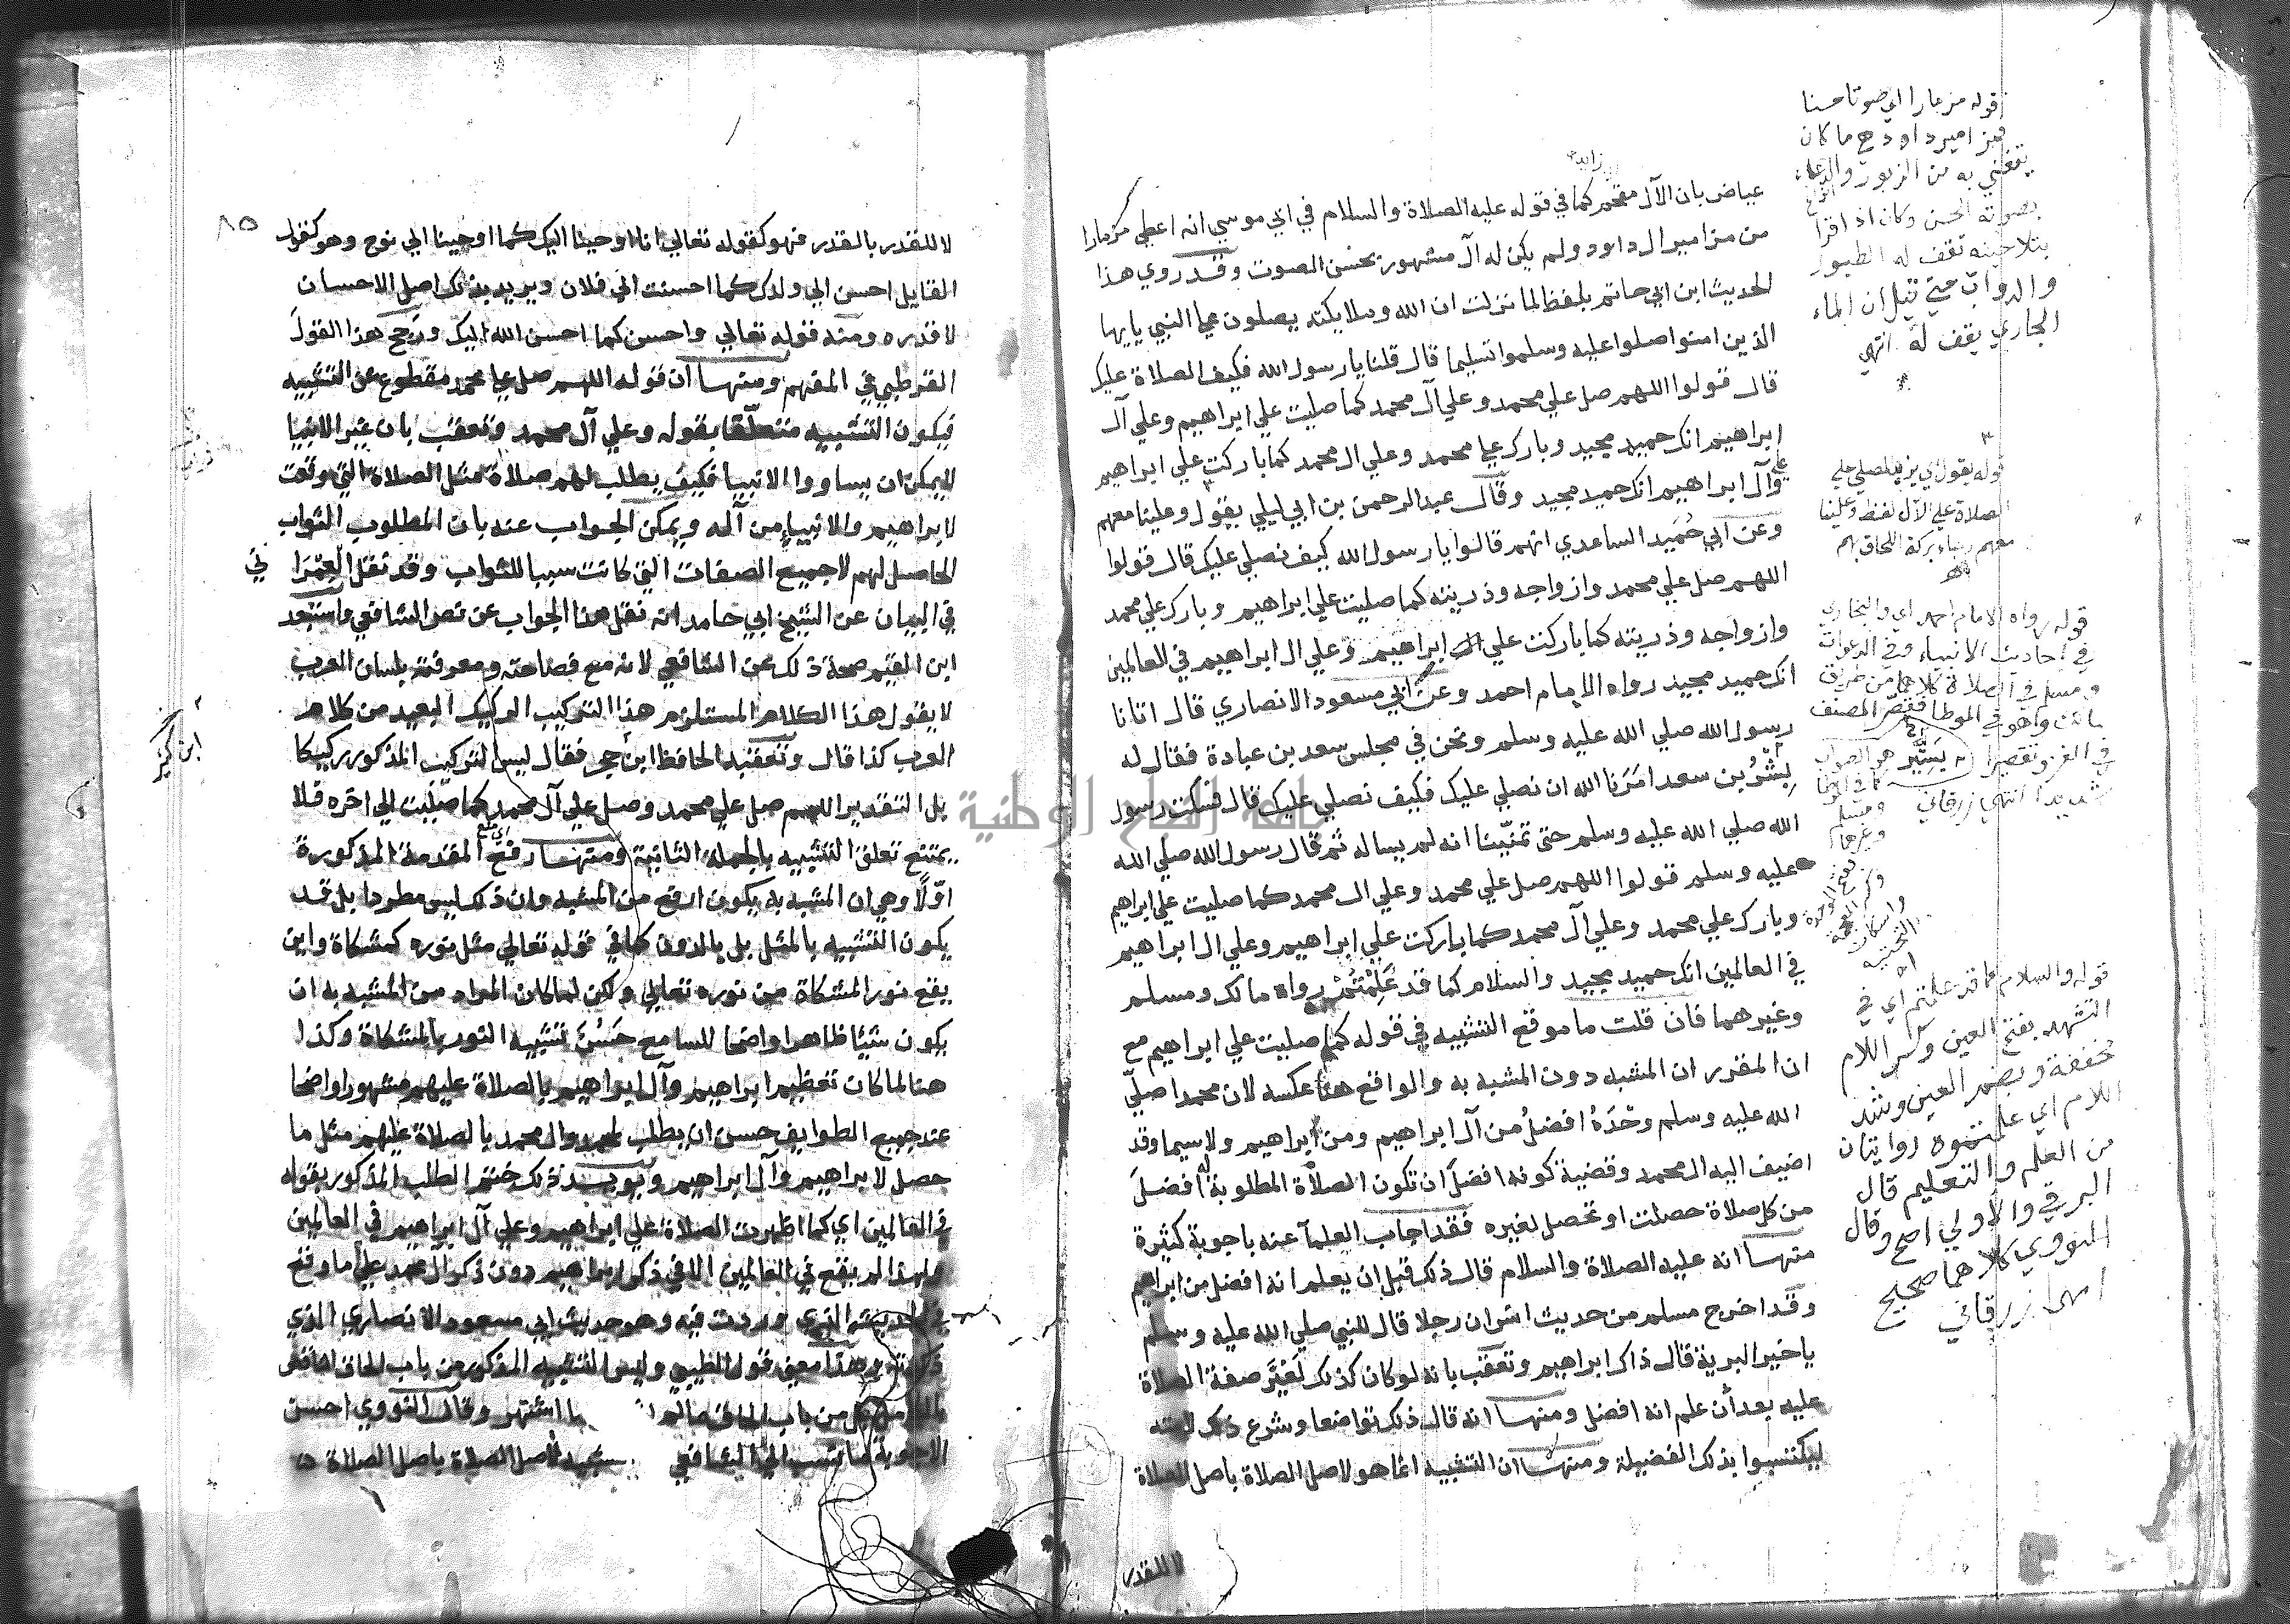 زائد
عياض بان الآل مقحم كما في قوله عليه الصلاة والسلام في ابي موسي انه اعطي مزمارا
من مزامير ال داود ولم يكن له آل مشهور بحسن الصوت وقد روي هذا
الحديث ابن ابي حاتم بلفظ لما نزلت ان الله وملايكته يصلون علي النبي يايها
الذين امنوا صلوا عليه وسلموا تسليما قال قلنا يا رسول الله فكيف الصلاة عليك
قال قولوا اللهم صل علي محمد وعلي آل محمد كما صليت علي ابراهيم وعلي آل
ابراهيم انك حميد مجيد وبارك علي محمد وعلي ال محمد كما باركت علي ابراهيم
وآل ابراهيم انك حميد مجيد وقال عبد الرحمن بن ابي ليلي يقول وعلينا معهم
وعن ابي حُمَيد الساعدي انهم قالوا يا رسول الله كيف نصلي عليك قال قولوا
اللهم صل علي محمد وازواجه وذريته كما صليت علي ابراهيم وبارك علي محمد
وازواجه وذريته كما باركت علي ابراهيم وعلي ال ابراهيم في العالمين
انك حميد مجيد رواه الامام احمد وعن ابي مسعود الانصاري قال اتانا
رسول الله صلي الله عليه وسلم ونحن في مجلس سعد بن عبادة فقال له
بشر بن سعد امَرَنا الله ان نصلي عليك فكيف نصلي عليك قال فسكت رسول
الله صلي الله عليه وسلم حتى تمنّينا انه لم يساله ثم قال رسول الله صلي الله
عليه وسلم قولوا اللهم صل علي محمد وعلي ال محمد كما صليت علي ابراهيم
وبارك علي محمد وعلي آل محمد كما باركت علي ابراهيم وعلي ال ابراهيم
في العالمين انك حميد مجيد والسلام كما قد عُلِّمْتُمْ رواه مالك ومسلم
وغيرهما فان قلت ما موقع التشبيه في قوله كما صليت علي ابراهيم مع
ان المقرر ان المشبه دون المشبه به والواقع هنا عكسه لان محمدا صلّي
الله عليه وسلم وحْدَهُ افضلُ من آل ابراهيم ومن ابراهيم ولا سيما وقد
اضيف اليه ال محمد وقضية كونه افضلَ ان تكون الصلاة المطلوبة له افضلَ
من كل صلاة حصلت او تحصل لغيره فقد اجاب العلمآ عنه باجوبة كثيرة
منها انه عليه الصلاة والسلام قال ذلك قبل ان يعلم انه افضل من ابراهيم
وقد اخرج مسلم من حديث انس ان رجلا قال للنبي صلي الله عليه وسلم
يا خير البرية قال ذاك ابراهيم وتعقب بانه لو كان كذلك لغَيَّر صفة الصلاة
عليه بعد أن علم انه افضل ومنها انه قال ذلك تواضعا وشرع ذلك لامته
ليكتسبوا بذلك الفضيلة ومنها ان التشبيه انما هو لاصل الصلاة باصل الصلاة
لا للقدر
قوله مزمارا اي صوتا حسنا
مزامير داود هي ما كان
يتغني به من الزبور والدعاء
بصوته الحسن وكان اذا قرا
بتلاحينه تقف له الطيور
والدواب حتي قيل ان الماء
الجاري يقف له انتهي
قوله يقول اي يزيد المصلي علي
الصلاة علي الآل لفظ وعلينا
معهم رجاء بركة اللحاق بهم
قوله رواه الامام احمد اي والبخاري
في احاديث الانبياء وفي الدعوات
ومسلم في الصلاة كلاهما من طريق
مالك وهو في الموطا فقصر المصنف
في العزو تقصيرا
شديدا انتهي زرقاني
هو الصواب
كما في الموطا
ومسلم
وغيرهما
بفتح الموحدة
وكسر المعجمة
واسكان
التحتية
اه
قوله والسلام كما قد علمتم اي في
التشهد بفتح العين وكسر اللام
مخففة وبضم العين وشد
اللام اي علمتموه روايتان
من العلم والتعليم قال
البرقي والأولي اصح وقال
النووي كلاهما صحيح
انتهي زرقاني
٨٥
لا للقدر بالقدر فهو كقوله تعالي انا اوحينا اليك كما اوحينا الي نوح وهو كقول
القايل احسن الي ولدك كما احسنت الي فلان ويريد بذلك اصل الاحسان
لا قدره ومنه قوله تعالي واحسن كما احسن الله اليك ورجح هذا القولَ
القرطبي في المفهم ومنها ان قوله اللهم صل علي محمد مقطوع عن التشبيه
فيكون التشبيه متعلّقا بقوله وعلي آل محمد وتعقب بان غير الانبيا
لا يمكن ان يساووا الانبيا فكيف يطلب لهم صلاة مثل الصلاة التي وقعت
لابراهيم والانبيا من آله ويمكن الجواب عنه بان المطلوب الثواب
الحاصل لهم لا جميع الصفات التي كانت سببا للثواب وقد نقل العِمْرَا ني
في البيان عن الشيخ ابي حامد انه نقل هذا الجواب عن نص الشافعي واستبعد
ابن القيم صحة ذلك عن الشافعي لانه مع فصاحته ومعرفته بلسان العرب
لا يقول هذا الكلام المستلزم هذا التركيب الركيك البعيد من كلام
العرب كذا قال وتعقبه الحافظ ابن حجر فقال ليس التركيب المذكور ركيكا
بل التقدير اللهم صل علي محمد وصل علي آل محمد كما صليت الي اخره فلا
يمتنع تعلق التشبيه بالجملة الثانية ومنها رفع المقدمة المذكورة
اي منع
اوّلا وهي ان المشبه به يكون ارفع من المشبه وان ذلك ليس مطردا بل قد
يكون التشبيه بالمثل بل بالدون كما في قوله تعالي مثل نوره كمشكاة واين
يقع نور المشكاة من نوره تعالي ولكن لما كان المراد من المشبه به ان
يكون شيئا ظاهرا واضحا للسامع حَسُنَ تشبيه النور بالمشكاة وكذا
هنا لما كان تعظيم ابراهيم وآل ابراهيم بالصلاة عليهم مشهورا واضحا
عند جميع الطوايف حسن ان يطلب لمحمد وال محمد بالصلاة عليهم مثل ما
حصل لابراهيم وآل ابراهيم ويويد ذلك ختم الطلب المذكور بقوله
في العالمين اي كما اظهرت الصلاة علي ابراهيم وعلي آل ابراهيم في العالمين
ولهذا لم يقع في العالمين الا في ذكر ابراهيم دون ذكر آل محمد علي ما وقع
في الحديث الذي وردت فيه وهو حديث ابي مسعود الانصاري الذي
ذكرته وهذا معني قول الطيبي وليس التشبيه المذكور من باب الحاق الناقص
بالكامل بل من باب الحاق ما لم ما اشتهر وقال النووي احسن
الاجوبة ما نسب الي الشافعي تشبيه اصل الصلاة باصل الصلاة